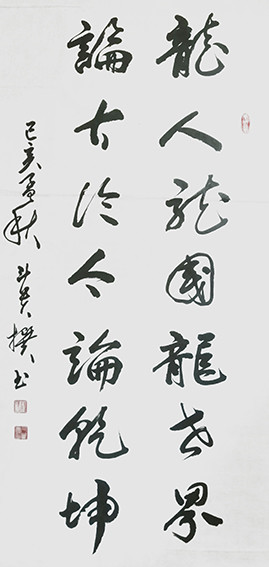 龍人龍國龍世界
論古论今論乾坤
己亥孟秋 斗撰书